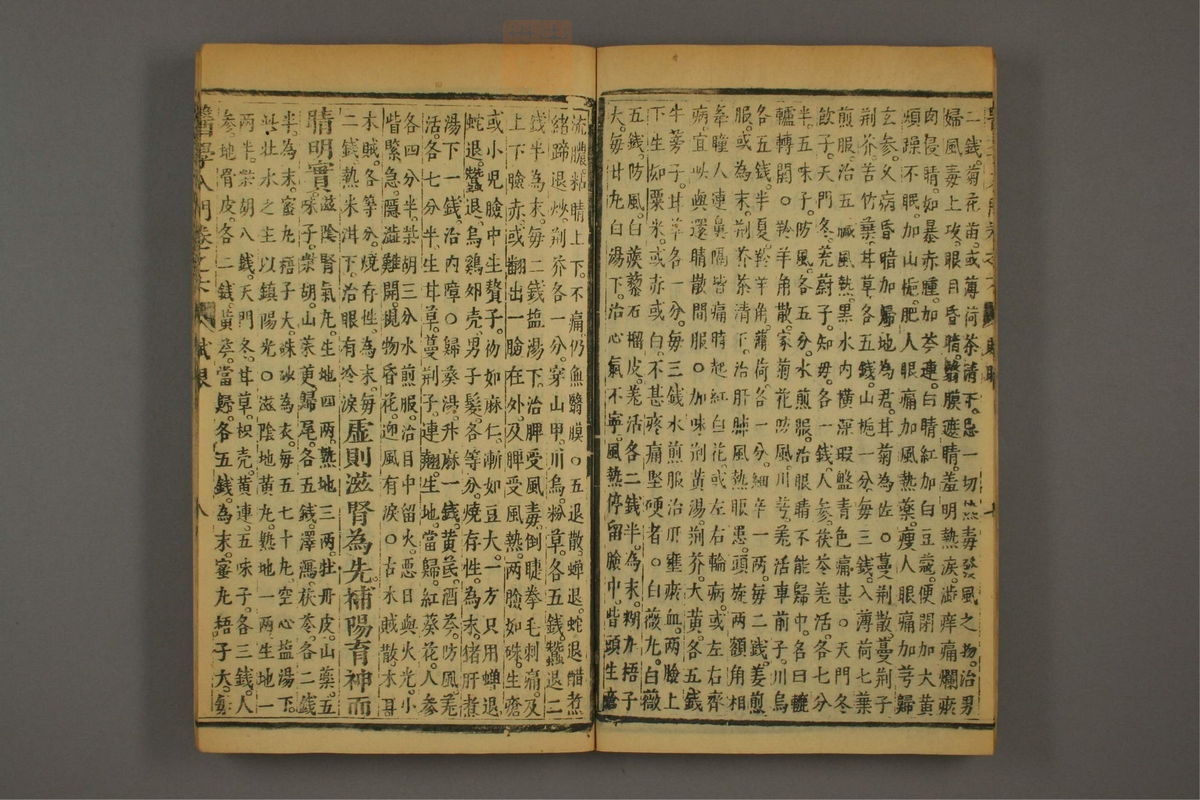 二錢。菊花苗或薄荷茶清下。忌一切熱毒發風之物。治男
婦風毒上攻。眼目昏睛。翳膜遮睛。羞明熱淚。澁痒痛爛瘀
肉侵睛。如暴赤腫。加芩連。白睛紅加白豆蔲。便閉加大黃
煩躁不眠。加山梔。肥人眼痛加風熱藥。瘦人眼痛加芎歸
玄參。久病昏暗。加歸地為君。甘菊為佐。○蔓荆散。蔓荆子
荆芥。苦竹葉。甘草各五錢。山梔一分。每三錢。入薄荷七葉
煎服。治五臟風熱。黑水內橫深瑕盤青色痛甚。○天門冬
飲子。天門冬。茺蔚子。知毋。各一錢。人參茯苓羗活各七分
半。五味子。防風各五分。水煎服。治眼睛不能歸中。名曰轆
轤轉關。○羚羊角散。家菊花防風。川芎。羗活。車前子。川烏
各五錢。半夏羚羊角。薄荷各一分。細辛一兩。每二錢。姜煎
服。或為末。荆芥茶清下。治肝肺風熱眼患。頭旋兩額角相
牽瞳人連鼻隔皆痛。時起紅白花。或左右輪病。或左右齊
病。宜與還睛散間服。○加味荆黃湯。荆芥。大黃。各五錢
牛蒡子。甘草各一分。每三錢水煎服。治肝壅瘀血。兩臉上
下生如粟米。或赤或白。不甚疼痛堅硬者。○白薇丸。白薇
五錢。防風。白蒺藜。石榴皮。羗活各二錢半。為末。糊丸梧子
大。每廿丸。白湯下。治心氣不寧。風熱停留臉中。眥頭生瘡
流膿粘睛上下。不痛仍無翳膜。○五退散。蟬退。蛇退醋煮
猪蹄退炒。荆芥各一分。穿山甲。川烏。粉草。各五錢。蠶退二
錢半為末。每二錢盬湯下。治脾受風毒。倒睫拳毛刺痛。及
上下臉赤。或翻出一臉在外。及脾受風熱。兩臉如硃。生瘡
或小兒臉中生贅子。初如麻仁漸如豆大。一方只用蟬退
蛇退蠶退。烏鷄卵壳。男子髮。各等分。燒存性。為末。猪肝煮
湯下一錢。治內障。○歸葵湯。升麻一錢。黃芪。酒芩。防風羗
活。各七分半。生甘草。蔓荆子。連翹。生地。當歸。紅葵花。人參
各四分半。柴胡三分水煎服。治目中留火。惡日與火光。小
眥緊急。隱澁難開。覩物昏花。迎風有淚。○古木賊散。木耳
木賊。各等分。燒存性。為末。每
二錢。熱米泔下。治眼有冷淚
虛則滋腎為先。補陽育神而
睛明實
滋陰腎氣丸。生地四兩。熟地三兩。牡丹皮。山藥。五
味子。柴胡。山茱萸歸尾。各五錢。澤瀉。茯苓。各二錢
半。為末。蜜丸梧子大。硃砂為衣。每五七十丸。空心盬湯下。
此壯水之主。以鎮陽光。○滋陰地黃丸。熟地一兩。生地一
兩半。柴胡八錢。天門冬。甘草。枳壳。黃連。五味子。各三錢。人
參。地骨皮。各二錢。黃芩。當歸。各五錢。為末。蜜丸梧子大。每
醫學入門卷之六
眼
八